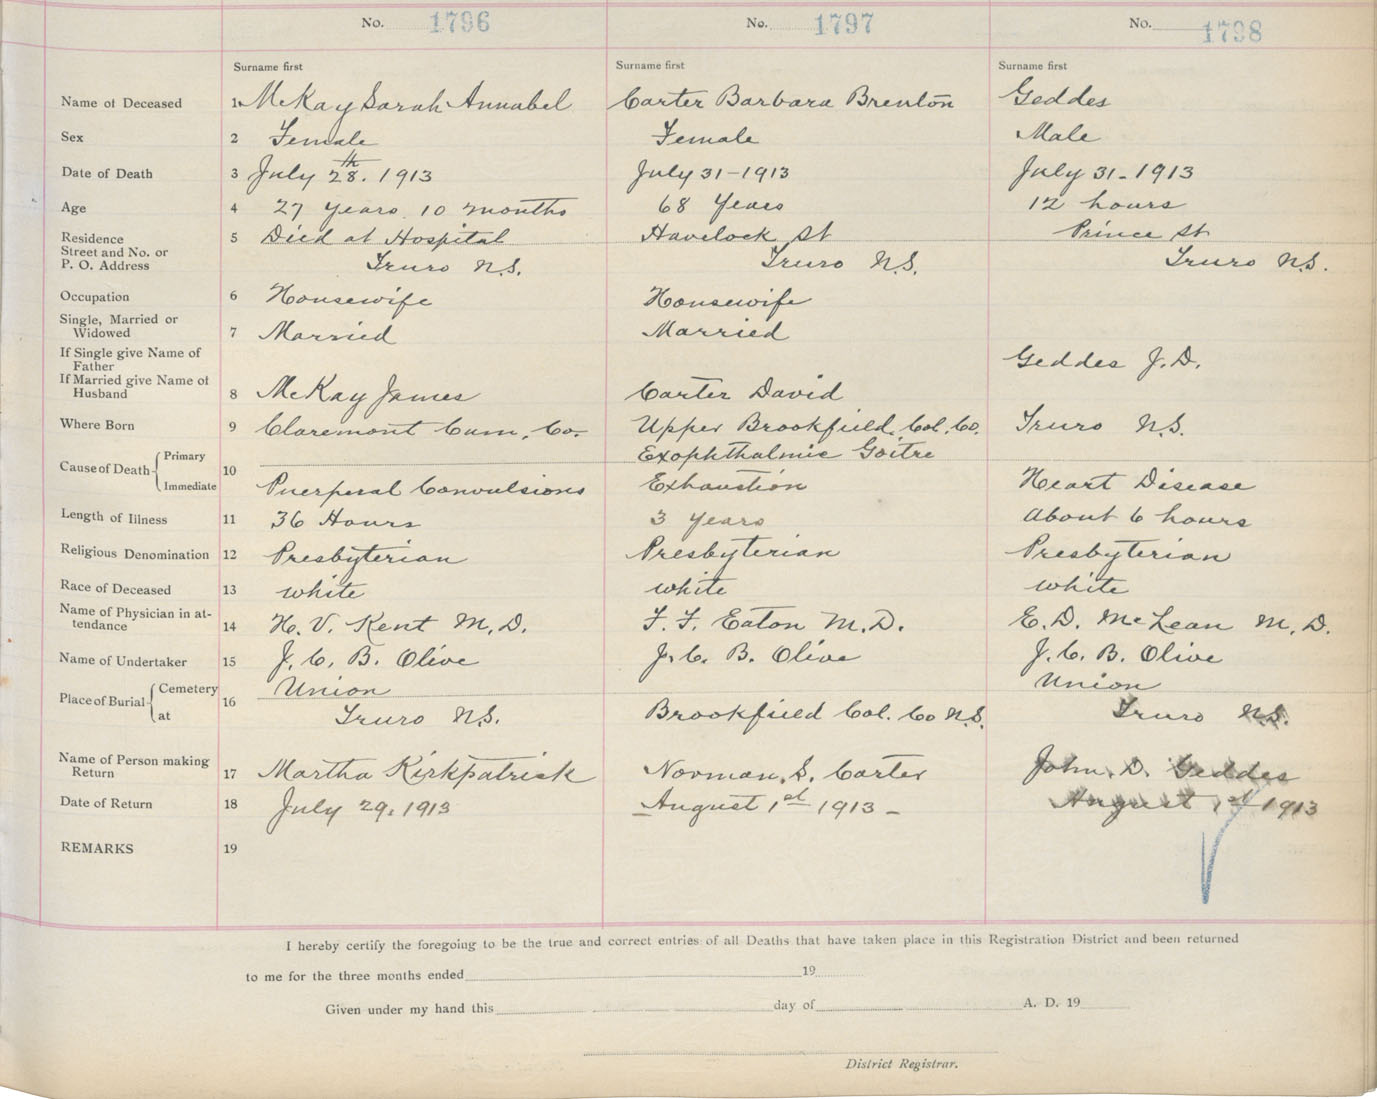 No. 1796 No. 1797 No. 1798
Surname first Surname first Surname first
Name of Deceased 1 McKay Sarah Annabel Carter Barbara Brenton Geddes
Sex 2 Female Female Male
Date of Death 3 July 28th. 1913 July 31-1913 July 31-1913
Age 4 27 years 10 months 68 Years 12 hours
Residence 5 Died at Hospital Havelock St Prince St
Street and No. or
P. O. Address Truro N.S. Truro N.S. Truro N.S.
Occupation 6 Housewife Housewife
Single, Married or
Widowed 7 Married Married
If Single give Name of
Father Geddes J. D.
If Married give Name of
Husband 8 McKay James Carter David
Where Born 9 Claremont Cum. Co. Upper Brookfield. Col. Co. Truro N.S.
Cause of Death Primary 10 Exophthalmic Goitre
Immediate Puerperal Convulsions Exhaustion Heart Disease
Length of Illness 11 36 Hours 3 Years about 6 hours
Religious Denomination 12 Presbyterian Presbyterian Presbyterian
Race of Deceased 13 white white white
Name of Physician in at-
tendance 14 H. V. Kent M. D. F. F. Eaton M. D. E. D. McLean M. D.
Name of Undertaker 15 J. C. B. Olive J. C. B. Olive J. C. B. Olive
Place of Burial Cemetery 16 Union Union
at Truro N.S. Brookfield Col. Co N.S. Truro N.S.
Name of Person making
Return 17 Martha Kirkpatrick Norman. S. Carter John. D. Geddes
Date of Return 18 July 29, 1913 August 1st 1913 - August 1st 1913
REMARKS 19
I hereby certify the foregoing to be the true and correct entries of all Deaths that have taken place in this Registration District and been returned
to me for the three months ended 19
Given under my hand this day of A. D. 19
District Registrar.